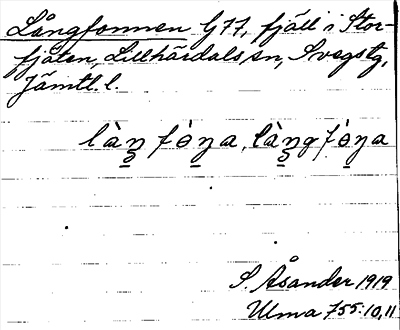 Långfonnen G77, fjäll i Stor-
fjäten, Lillhärdals sn, Svegs tg,
Jämtl. l.
S. Åsander 1919
Ulma 755:10,11